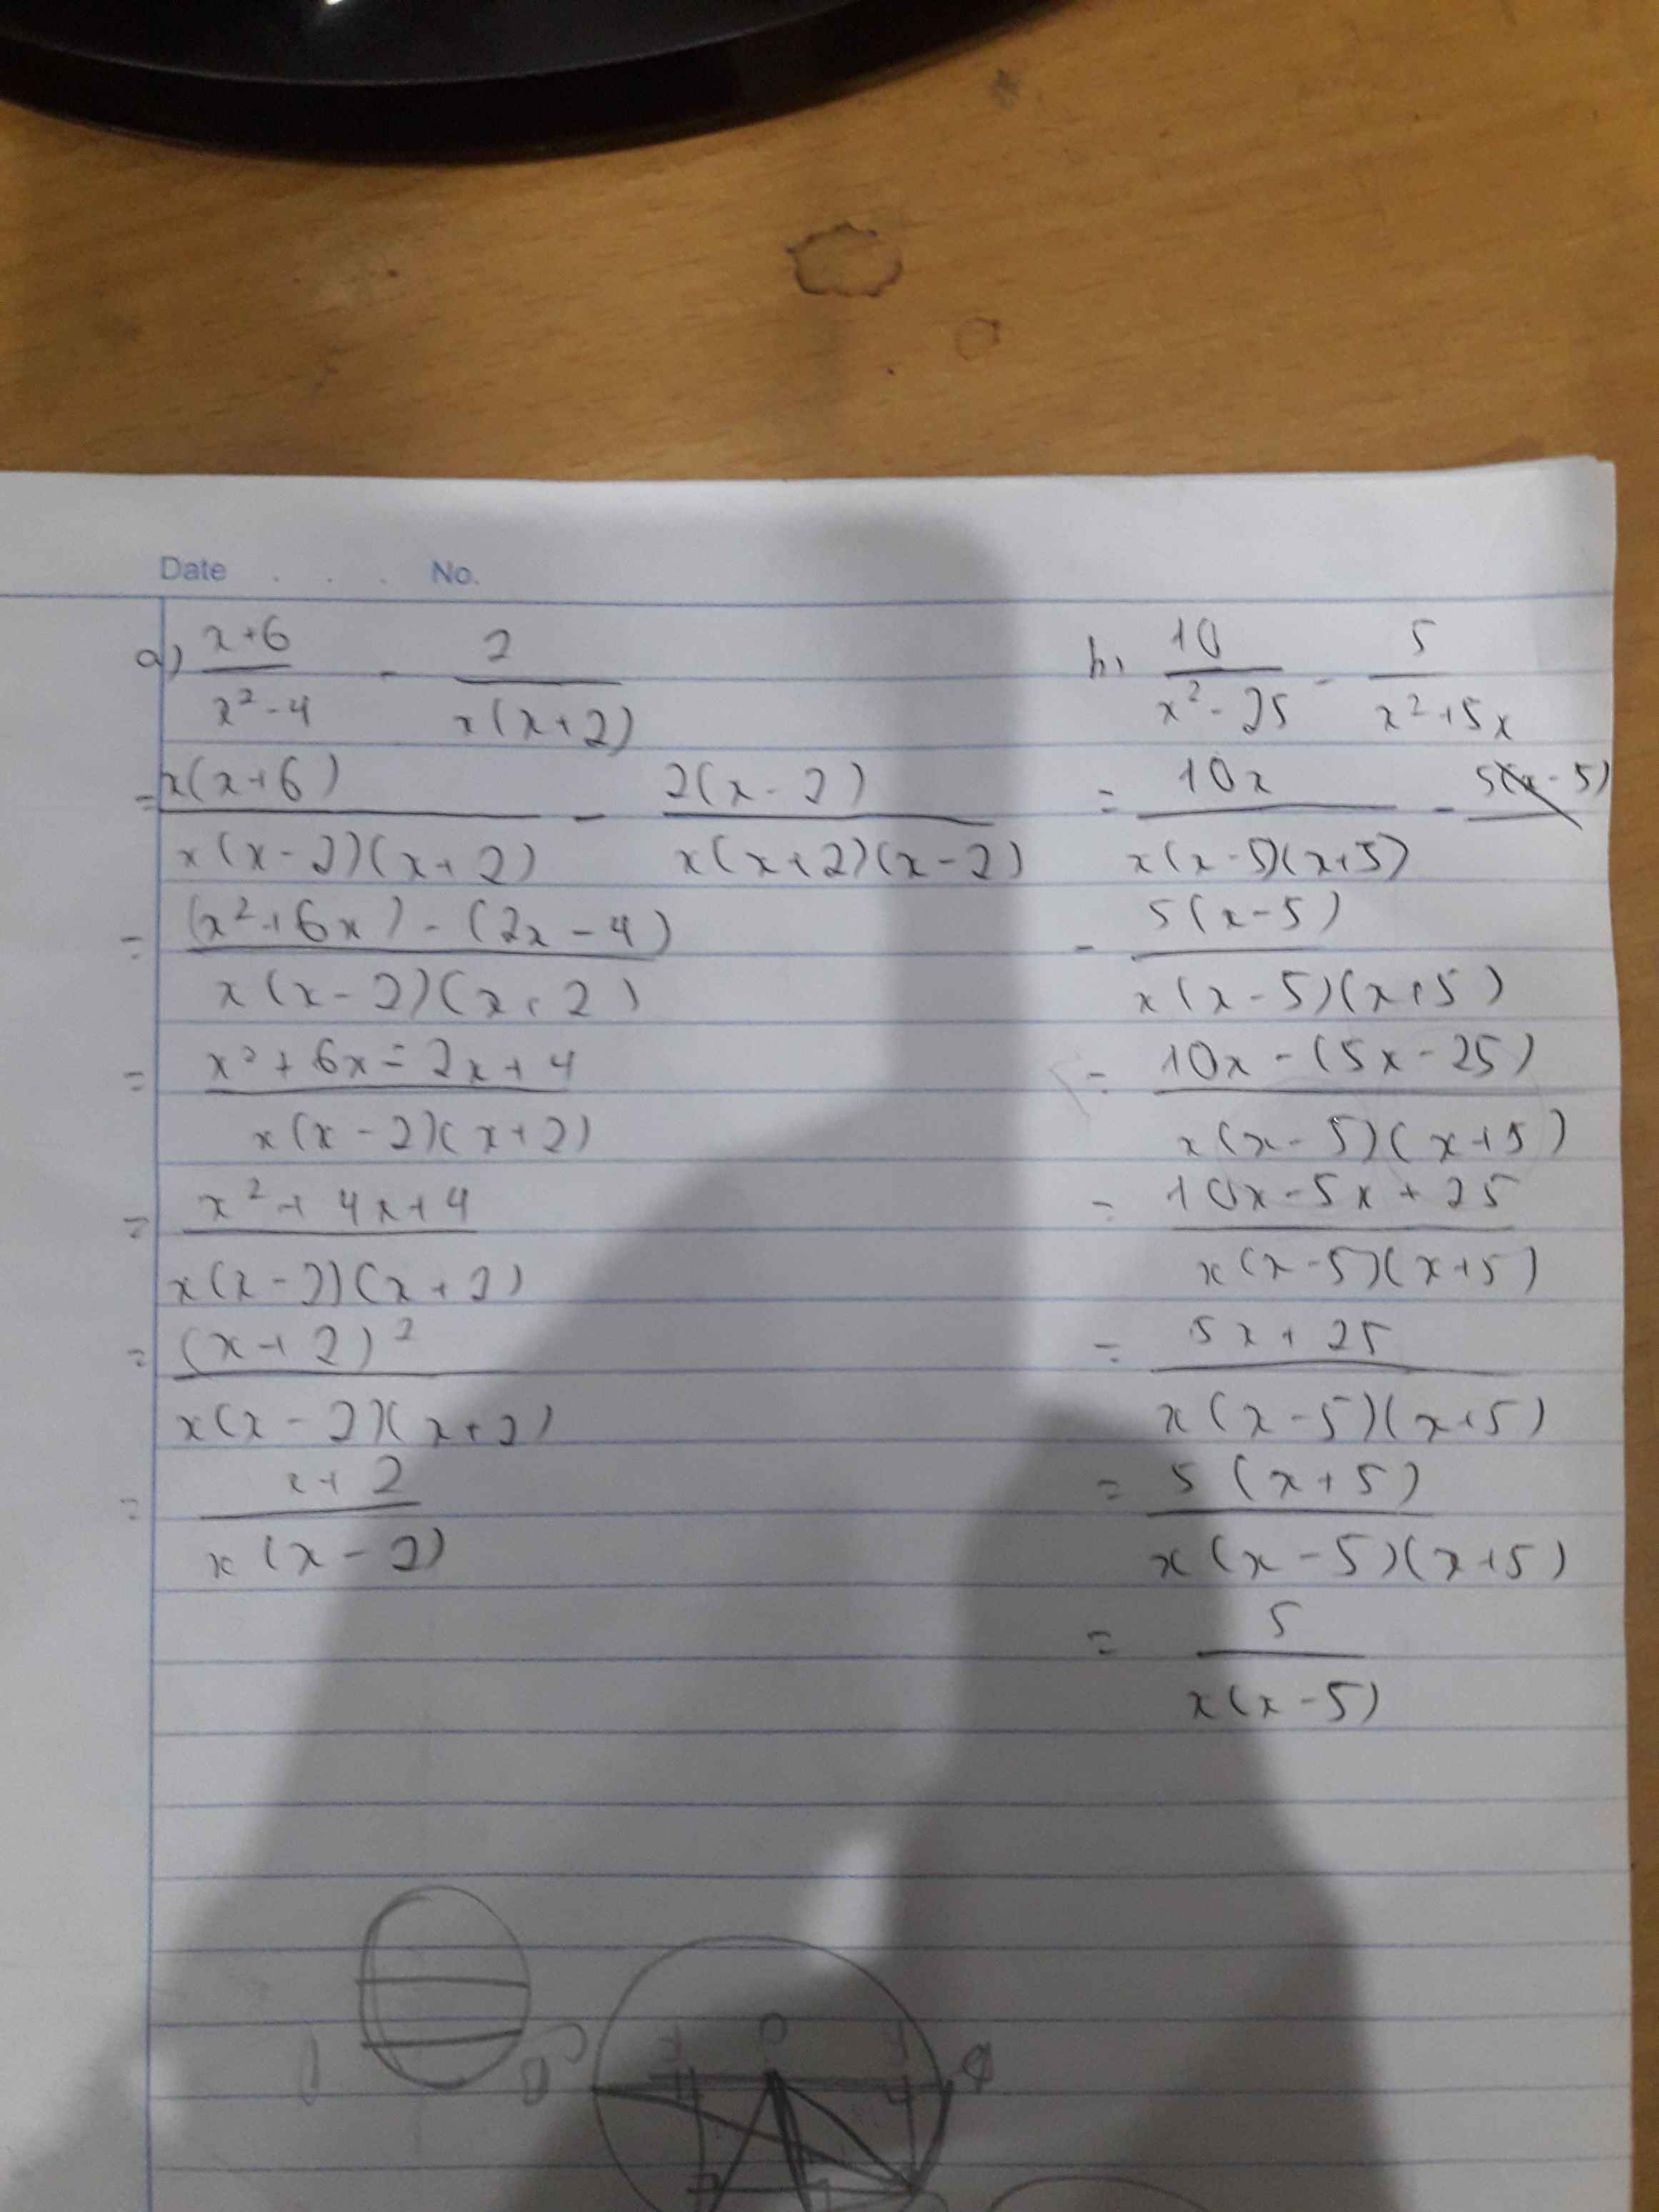 Date . . . No.
a) x+6 / x²-4 - 2 / x(x+2)
= x(x+6) / x(x-2)(x+2) - 2(x-2) / x(x+2)(x-2)
= (x²+6x) - (2x-4) / x(x-2)(x+2)
= x²+6x-2x+4 / x(x-2)(x+2)
= x²+4x+4 / x(x-2)(x+2)
= (x+2)² / x(x-2)(x+2)
= x+2 / x(x-2)
b, 10 / x²-25 - 5 / x²+5x
= 10x / x(x-5)(x+5) - 5(x-5)
- 5(x-5) / x(x-5)(x+5)
= 10x-(5x-25) / x(x-5)(x+5)
= 10x-5x+25 / x(x-5)(x+5)
= 5x+25 / x(x-5)(x+5)
= 5(x+5) / x(x-5)(x+5)
= 5 / x(x-5)